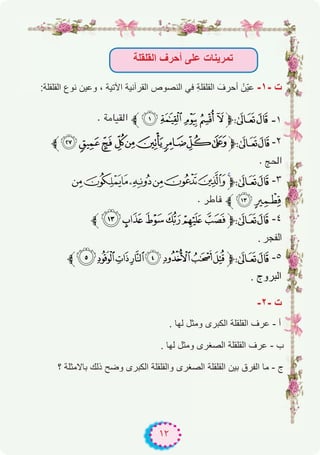 تمرينات على أحرف القلقلة
ت -١- عيّن أحرف القلقلة في النصوص القرآنية الآتية ، وعين نوع القلقلة:
١- قَالَ تَعَالَىٰ: ﴿ لَا أُقْسِمُ بِيَوْمِ الْقِيَامَةِ ١ ﴾ القيامة .
٢- قَالَ تَعَالَىٰ: ﴿ وَعَلَىٰ كُلِّ ضَامِرٍ يَأْتِينَ مِن كُلِّ فَجٍّ عَمِيقٍ ٢٧ ﴾
الحج .
٣- قَالَ تَعَالَىٰ: ﴿ وَالَّذِينَ تَدْعُونَ مِن دُونِهِ مَا يَمْلِكُونَ مِن
قِطْمِيرٍ ١٣ ﴾ فاطر .
٤- قَالَ تَعَالَىٰ: ﴿ فَصَبَّ عَلَيْهِمْ رَبُّكَ سَوْطَ عَذَابٍ ١٣ ﴾
الفجر .
٥- قَالَ تَعَالَىٰ: ﴿ قُتِلَ أَصْحَابُ الْأُخْدُودِ ٤ النَّارِ ذَاتِ الْوَقُودِ ٥ ﴾
البروج .
ت -٢-
أ - عرف القلقلة الكبرى ومثل لها .
ب - عرف القلقلة الصغرى ومثل لها .
ج - ما الفرق بين القلقلة الصغرى والقلقلة الكبرى وضح ذلك بالامثلة ؟
١٢